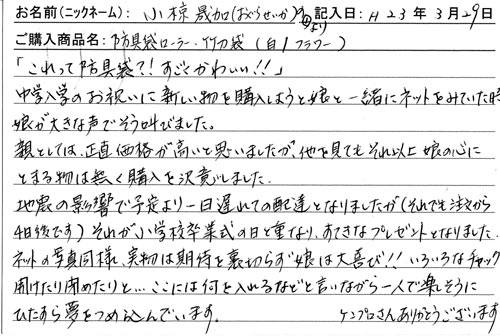 お名前(ニックネーム): 小椋 晟加(おぐらせいか)の母より 記入日: H23年3月29日
ご購入商品名: 防具袋ローラー・竹刀袋(白/フラワー)
「これって防具袋?! すごくかわいい!!」
中学入学のお祝いに新しい物を購入しようと娘と一緒にネットをみていた時
娘が大きな声でそう叫びました。
親としては、正直価格が高いと思いましたが、他を見てもそれ以上娘の心に
とまる物は無く購入を決意しました。
地震の影響で予定より一日遅れての配達となりましたが(それでも注文から
4日後です) それが小学校卒業式の日と重なり、すてきなプレゼントとなりました。
ネットの写真同様、実物は期待を裏切らず娘は大喜び!! いろいろなチャック
開けたり閉めたりと… ここには何を入れるなどと言いながら一人で楽しそうに
ひたすら夢をつめ込んでいます。
ケンプロさんありがとうございます